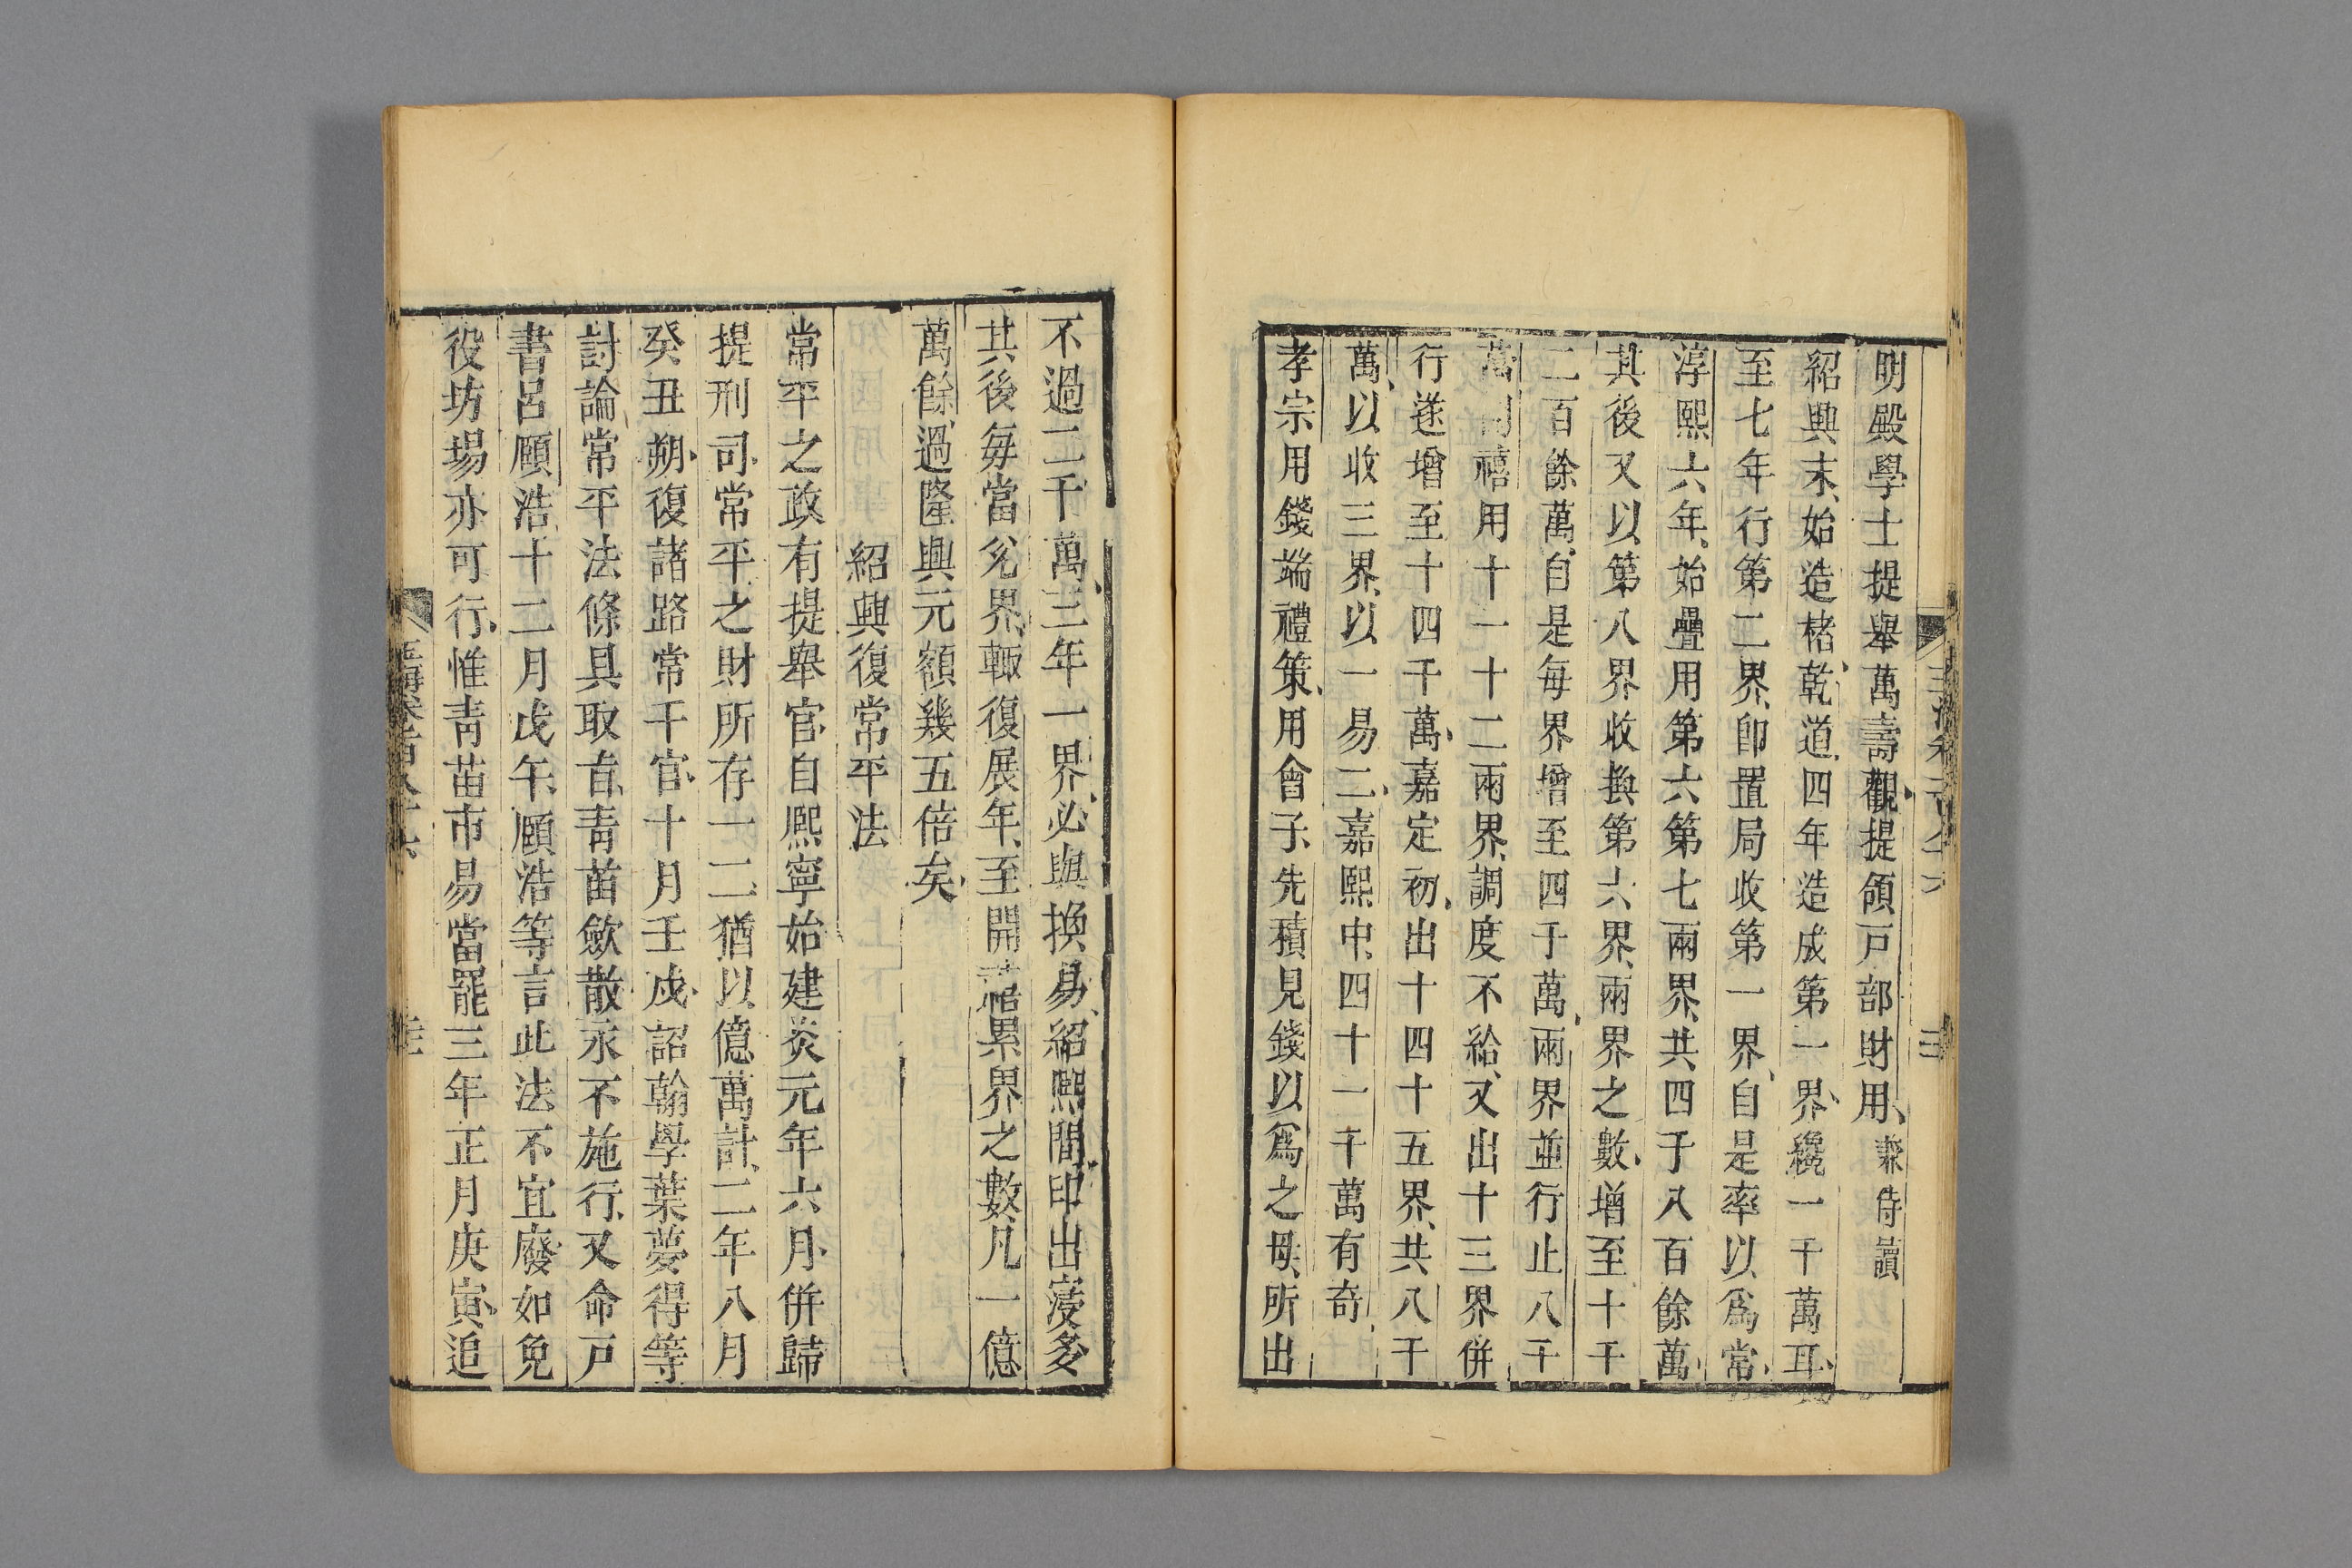 明殿學士提舉萬壽觀提領戸部財用兼侍讀
紹興末始造楮乾道四年造成第一界纔一千萬耳
至七年行第二界卽置局收第一界自是率以爲常
淳熙六年始疊用第六第七兩界共四千八百餘萬
其後又以第八界收換第六界兩界之數增至十千
二百餘萬自是每界增至四千萬兩界並行止八千
萬開禧用十一十二兩界調度不給又出十三界併
行遂增至十四千萬嘉定初出十四十五界共八千
萬以收三界以一易二嘉熙中四十一千萬有奇
孝宗用錢端禮策用會子先積見錢以爲之母所出
不過二千萬三年一界必與換易紹熙間印出寖多
其後每當兊界輒復展年至開禧累界之數凡一億
萬餘過隆興元額幾五倍矣
紹興復常平法
常平之政有提舉官自熙寧始建炎元年六月併歸
提刑司常平之財所存一二猶以億萬計二年八月
癸丑朔復諸路常干官十月壬戌詔翰學葉夢得等
討論常平法條具取㫖青苗歛散永不施行又命戸
書呂頤浩十二月戊午頤浩等言此法不宜廢如免
役坊場亦可行惟青苗市易當罷三年正月庚寅追